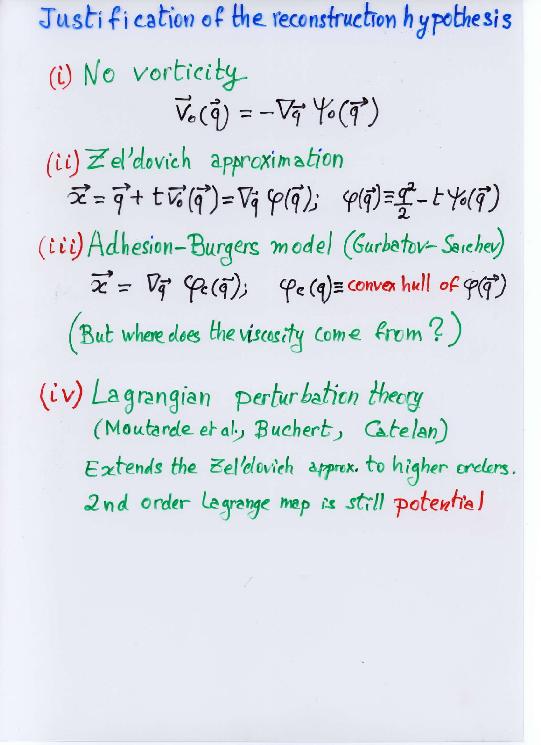 Justification of the reconstruction hypothesis
(i) No vorticity
v⃗₀(q⃗) = −∇q⃗ ψ₀(q⃗)
(ii) Zel'dovich approximation
x⃗ = q⃗ + t v⃗₀(q⃗) = ∇q⃗ φ(q⃗); φ(q⃗) ≡ q²/2 − t ψ₀(q⃗)
(iii) Adhesion-Burgers model (Gurbatov-Saichev)
x⃗ = ∇q⃗ φc(q⃗); φc(q) ≡ convex hull of φ(q⃗)
(But where does the viscosity come from?)
(iv) Lagrangian perturbation theory
(Moutarde et al., Buchert, Catelan)
Extends the Zel'dovich approx. to higher orders.
2nd order Lagrange map is still potential